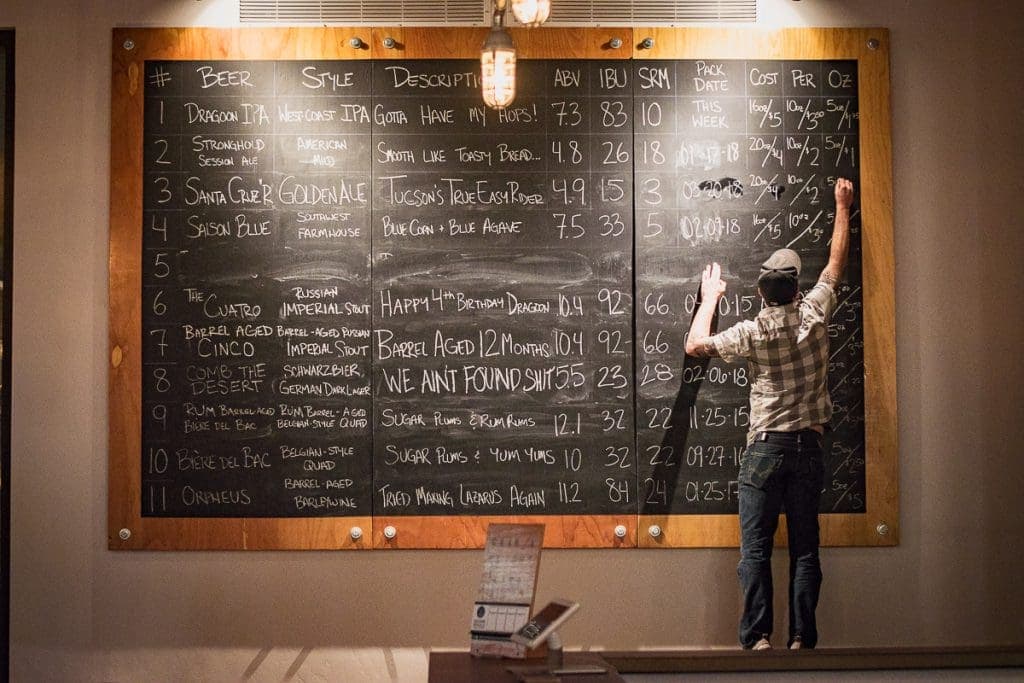 # BEER STYLE DESCRIPTI ABV IBU SRM PACK DATE COST PER OZ
1 DRAGOON IPA WEST COAST IPA GOTTA HAVE MY HOPS! 7.3 83 10 THIS WEEK 16oz/$5 10oz/$3.50 5oz/
2 STRONGHOLD SESSION ALE AMERICAN MILD SMOOTH LIKE TOASTY BREAD... 4.8 26 18 01-17-18 20oz/$4 10oz/$2 5oz/$1
3 SANTA CRUZ'R GOLDEN ALE TUCSON'S TRUE EASY RIDER 4.9 15 3 03-20-18 20oz/$4 10oz/$2
4 SAISON BLUE SOUTHWEST FARMHOUSE BLUE CORN + BLUE AGAVE 7.5 33 5 02-09-18 16oz/$5 10oz/
5
6 THE CUATRO RUSSIAN IMPERIAL STOUT HAPPY 4th BIRTHDAY DRAGOON 10.4 92 66
7 BARREL AGED CINCO BARREL-AGED RUSSIAN IMPERIAL STOUT BARREL AGED 12 MONTHS 10.4 92 66
8 COMB THE DESERT SCHWARZBIER, GERMAN DARK LAGER WE AIN'T FOUND SHIT 5.5 23 28 02-06-18
9 RUM BARREL AGED BIÈRE DEL BAC RUM BARREL-AGED BELGIAN-STYLE QUAD SUGAR PLUMS & RUM RUMS 12.1 32 22 11-25-15
10 BIÈRE DEL BAC BELGIAN-STYLE QUAD SUGAR PLUMS & YUM YUMS 10 32 22 09-27-16
11 ORPHEUS BARREL-AGED BARLEYWINE TRIED MAKING LAZARUS AGAIN 11.2 84 24 01-25-17